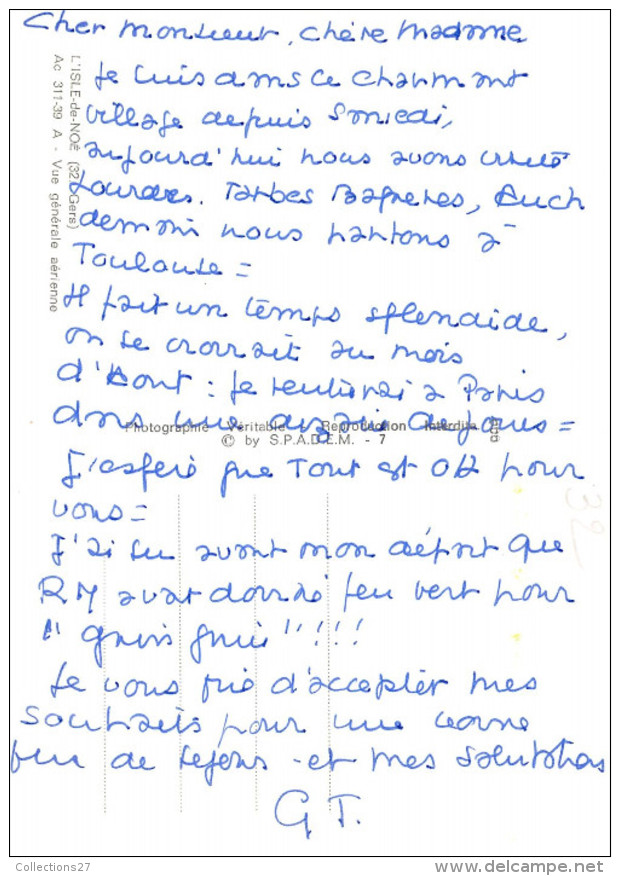 Cher Monsieur, chère Madame
Je suis dans ce charmant
village depuis Samedi,
aujourd'hui nous avons visité
Lourdes. Tarbes Bagneres, Auch
demain nous partons à
Toulouse =
Il fait un temps splendide,
on se croirait au mois
d'Aout : Je rentrerai à Paris
dans une dizaine de jours =
J'espère que Tout est OK pour
vous =
J'ai su avant mon départ que
RM avait donné feu vert pour
!!!!
Je vous prie d'accepter mes
Souhaits pour une bonne
fin de séjour - et mes salutations
G T.
L'ISLE-de-NOÉ (32 - Gers)
Ac 311-39 A - Vue générale aérienne
Photographie Véritable Reproduction Interdite
© by S.P.A.D.E.M. - 7
32
Collections27